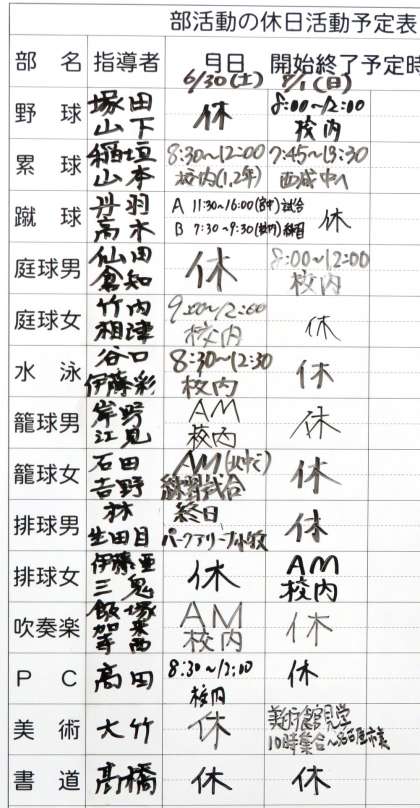 部活動の休日活動予定表
部名 指導者 月日 開始終了予定時
6/30(土) 7/1(日)
野球 塚田 山下 休 8:00~12:00 校内
累球 稲垣 山本 8:30~12:00 校内(1,2年) 7:45~13:30 西成中へ
蹴球 丹羽 高木 A 11:30~16:00 試合 B 7:30~9:30(校内)練習 休
庭球男 仙田 倉知 休 8:00~12:00 校内
庭球女 竹内 相津 9:00~12:00 校内 休
水泳 谷口 伊藤彩 8:30~12:30 校内 休
籠球男 岸野 江見 AM 校内 休
籠球女 石田 吉野 AM(北中で) 練習試合 休
排球男 林 生田目 終日 パークアリーナ小牧 休
排球女 伊藤亜 三鬼 休 AM 校内
吹奏楽 飯塚 加来 寺西 AM 校内 休
PC 高田 8:30~12:00 校内 休
美術 大竹 休 美術館見学 10時集合~名古屋市美
書道 髙橋 休 休